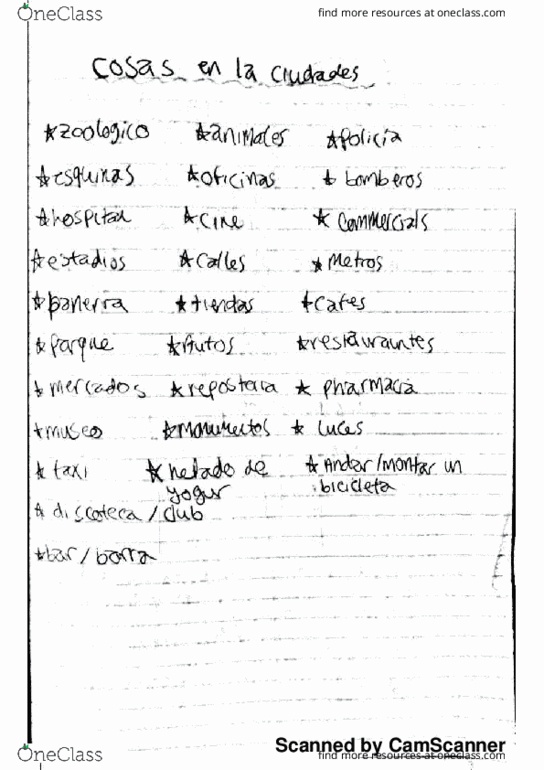 OneClass find more resources at oneclass.com
cosas en la ciudades
★zoologico ★animales ★policia
★esquinas ★oficinas ★ bomberos
★hospital ★ cine ★ commercials
★estadios ★ calles ★ metros
★panerra ★tiendas ★cafes
★parque ★Autos ★restaurantes
★mercados ★reposteria ★ pharmacia
★museo ★monumectos ★ luces
★ taxi ★helado de ★ Andar/montar un
yogur bicicleta
★ discoteca / club
★bar / barra
Scanned by CamScanner
OneClass find more resources at oneclass.com